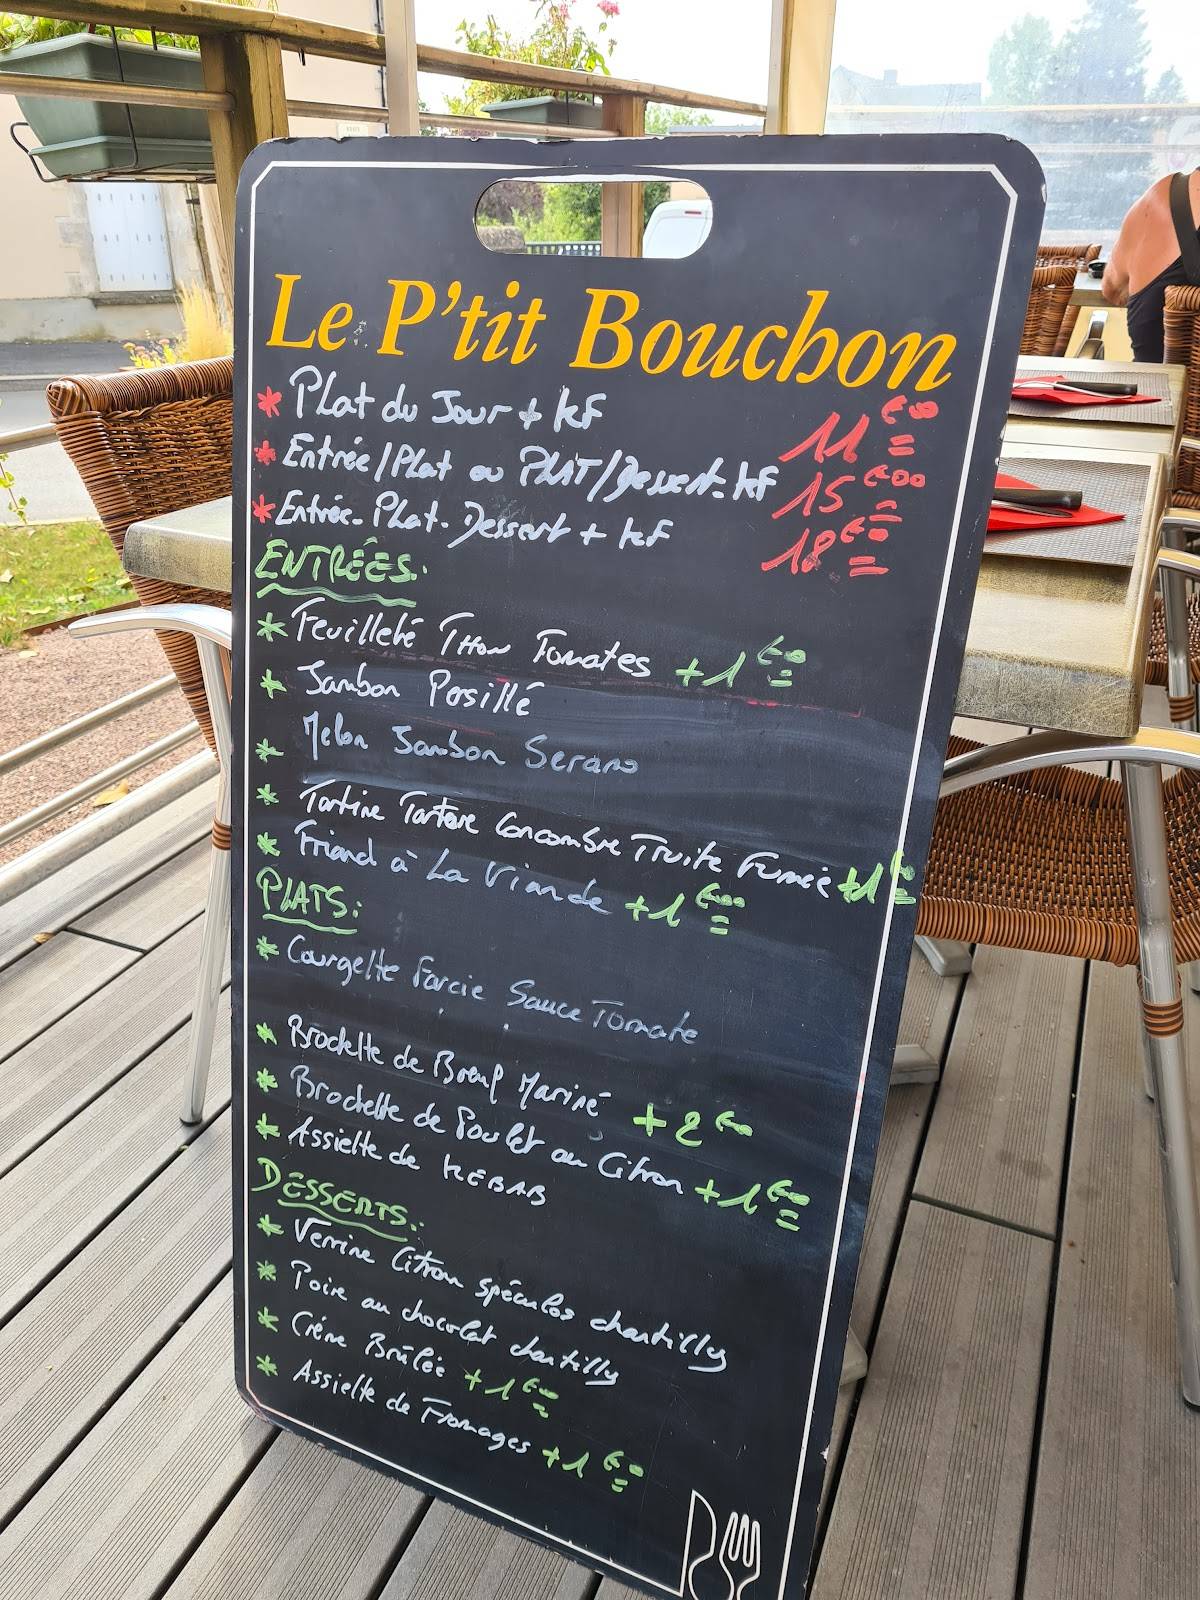 Le P'tit Bouchon
* Plat du Jour + kf 11€00
* Entrée/Plat ou PLAT/Dessert. kf 15€00
* Entrée. Plat. Dessert + kf 18€00
ENTRÉES:
* Feuilleté THON Tomates +1€00
* Jambon Persillé
* Melon Jambon Serano
* Tartine Tartare Concombre Truite Fumée +1€
* Friand à La Viande +1€00
PLATS:
* Courgette Farcie Sauce Tomate
* Brochette de Boeuf Mariné +2€00
* Brochette de Poulet au Citron +1€00
* Assiette de KEBAB
DESSERTS:
* Verrine Citron spéculos chantilly
* Poire au chocolat chantilly
* Crème Brûlée +1€00
* Assiette de Fromages +1€00